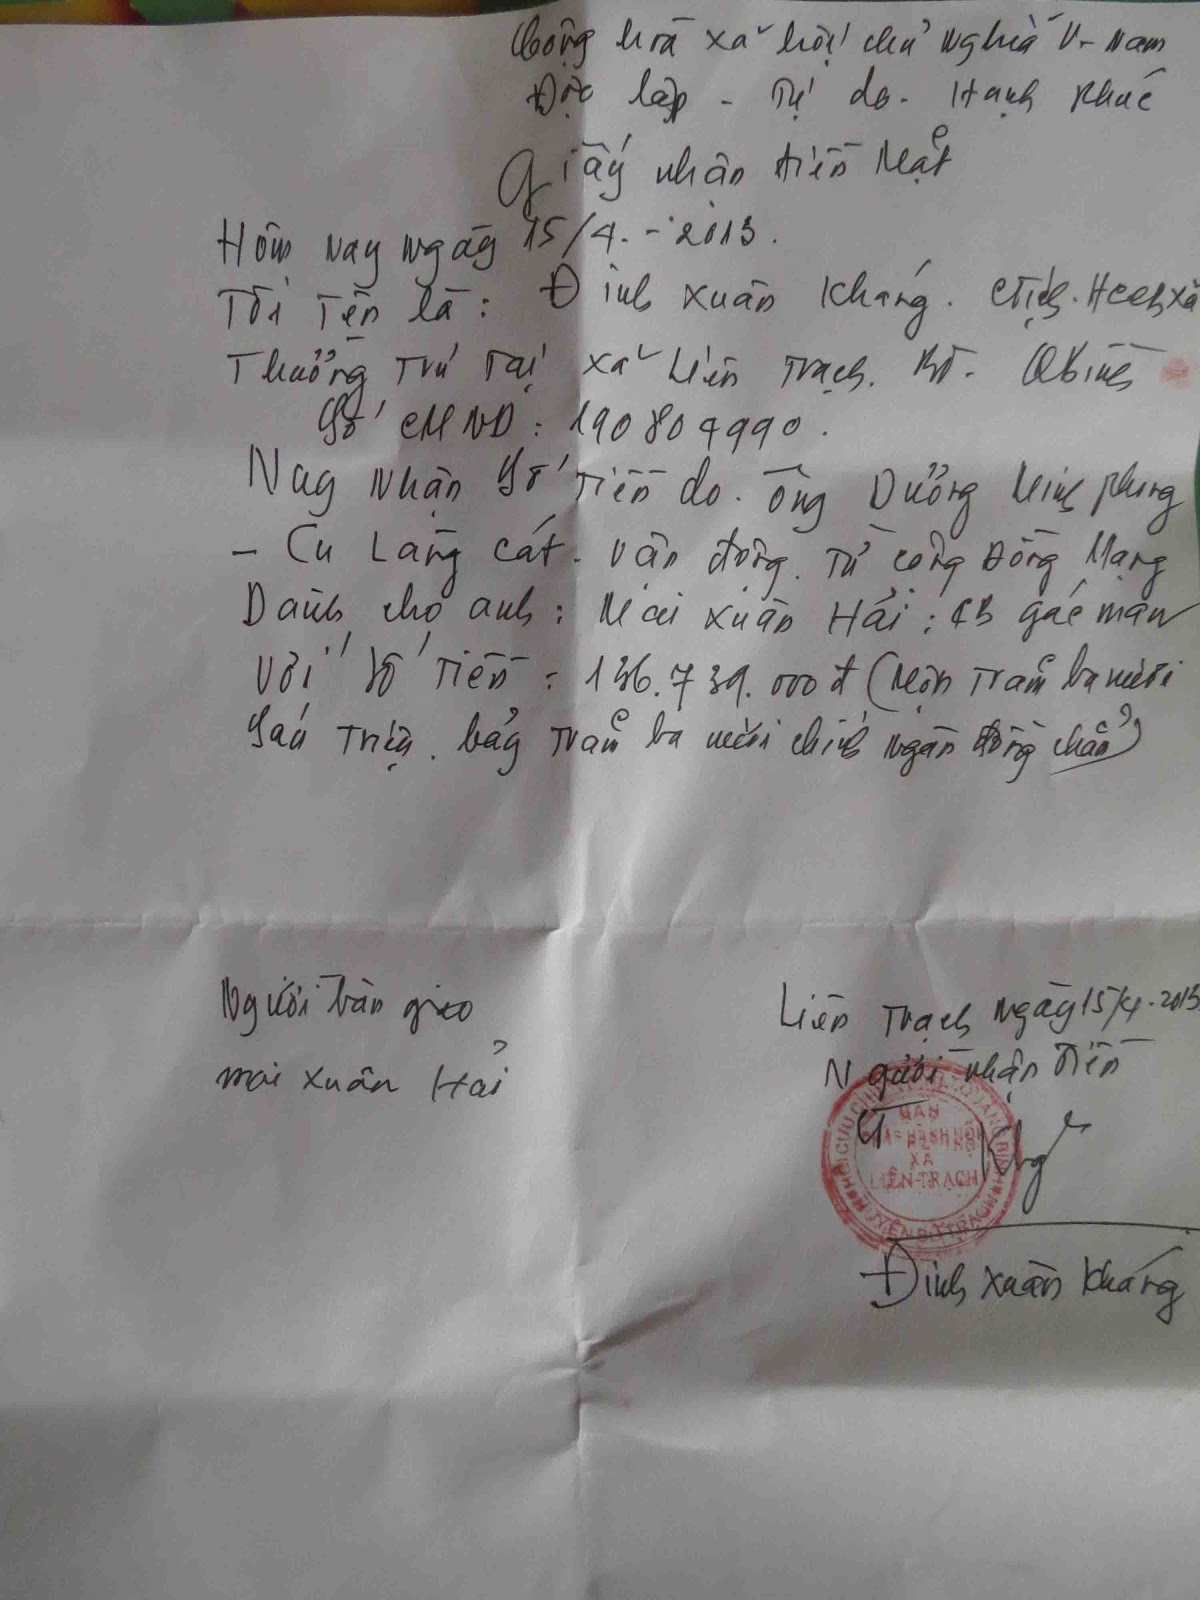 Cộng hoà xã hội chủ nghĩa V-Nam
Độc lập - Tự do - Hạnh Phúc
Giấy nhận tiền Mặt
Hôm nay ngày 15/4.-2013.
Tôi Tên là: Đinh Xuân Kháng. CTịch. Hccb xã
Thường Trú Tại xã Liên Trạch. BT. QBình
Số CMND: 190804990.
Nay Nhận Số Tiền do. ông Dương Minh Phong
- Cu Làng Cát. Vận động. Từ cộng Đồng Mạng
Dành cho anh: Mai Xuân Hải: CB gác màn
Với Số Tiền: 136.739.000đ (Một Trăm ba mươi
Sáu Triệu. bảy Trăm ba mươi chín ngàn đồng chẵn)
Người bàn giao
Mai Xuân Hải
Liên Trạch Ngày 15/4.2013
Người nhận Tiền
CT
HUYỆN BỐ TRẠCH
XÃ
LIÊN TRẠCH
Đinh Xuân Kháng